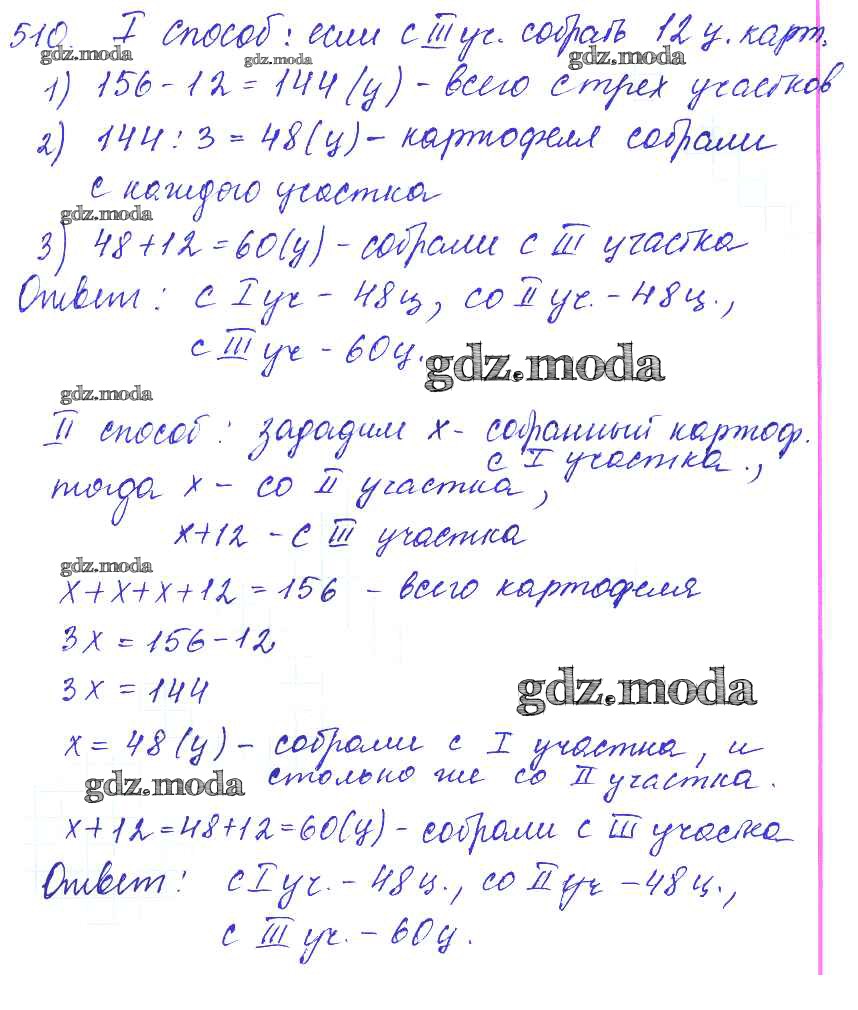 510. I способ: если с III уч. собрать 12 ц. карт.
gdz.moda gdz.moda gdz.moda
1) 156-12=144(ц) - всего с трех участков
2) 144:3=48(ц) - картофеля собрали
с каждого участка
gdz.moda
3) 48+12=60(ц) - собрали с III участка
Ответ: с I уч - 48ц, со II уч. - 48ц.,
с III уч - 60ц.
gdz.moda
gdz.moda
II способ: зададим x - собранный картоф.
с I участка.,
тогда x - со II участка,
x+12 - с III участка
gdz.moda
x+x+x+12=156 - всего картофеля
3x=156-12
3x=144
gdz.moda
x=48(ц) - собрали с I участка, и
gdz.moda столько же со II участка.
x+12=48+12=60(ц) - собрали с III участка
Ответ: с I уч. - 48ц., со II уч - 48ц.,
с III уч. - 60ц.